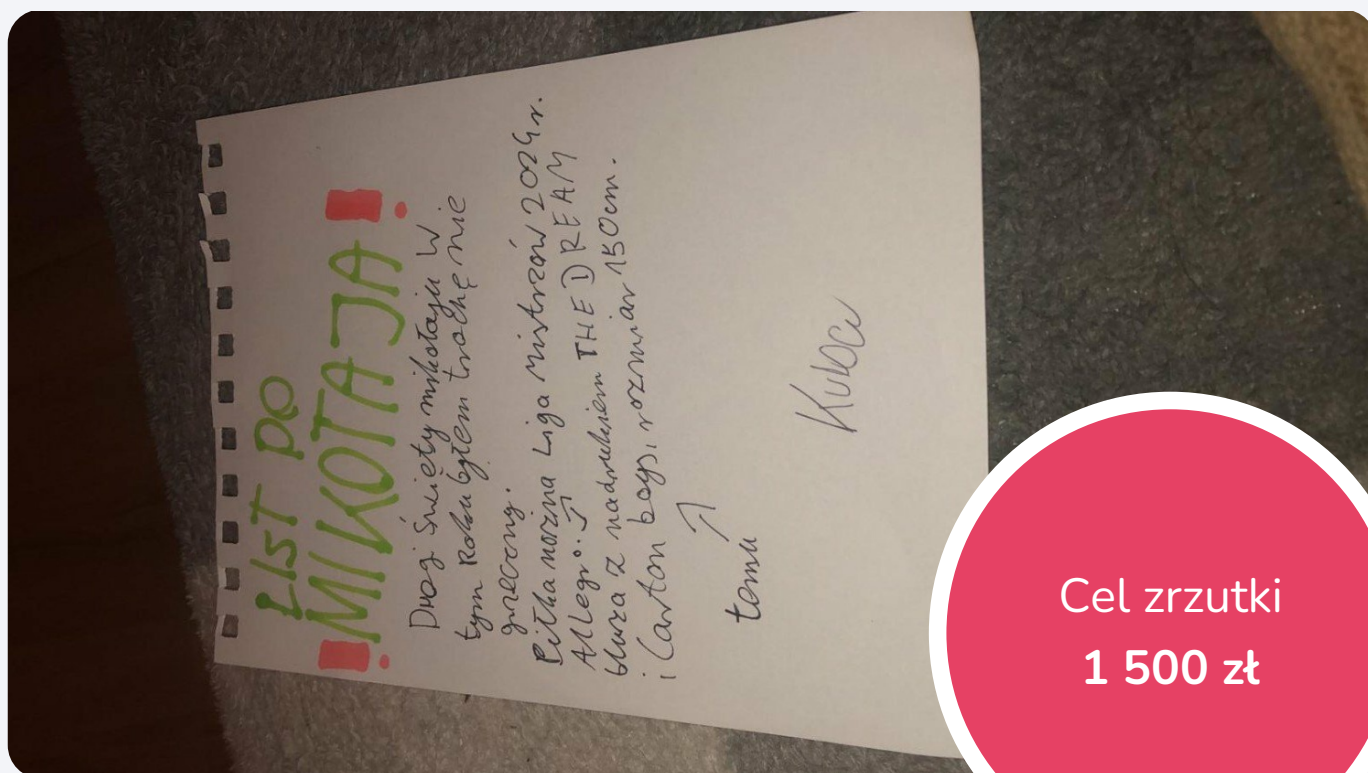 LIST DO
! MIKOŁAJA !
Drogi Święty mikołaju W
tym Roku byłem trochę nie
grzeczny.
Piłka nożna Liga Mistrzów 2024r.
Allegro.
bluza z nadrukiem THE DREAM
i Carton boys, rozmiar 150cm.
temu
Kuba
Cel zrzutki
1 500 zł